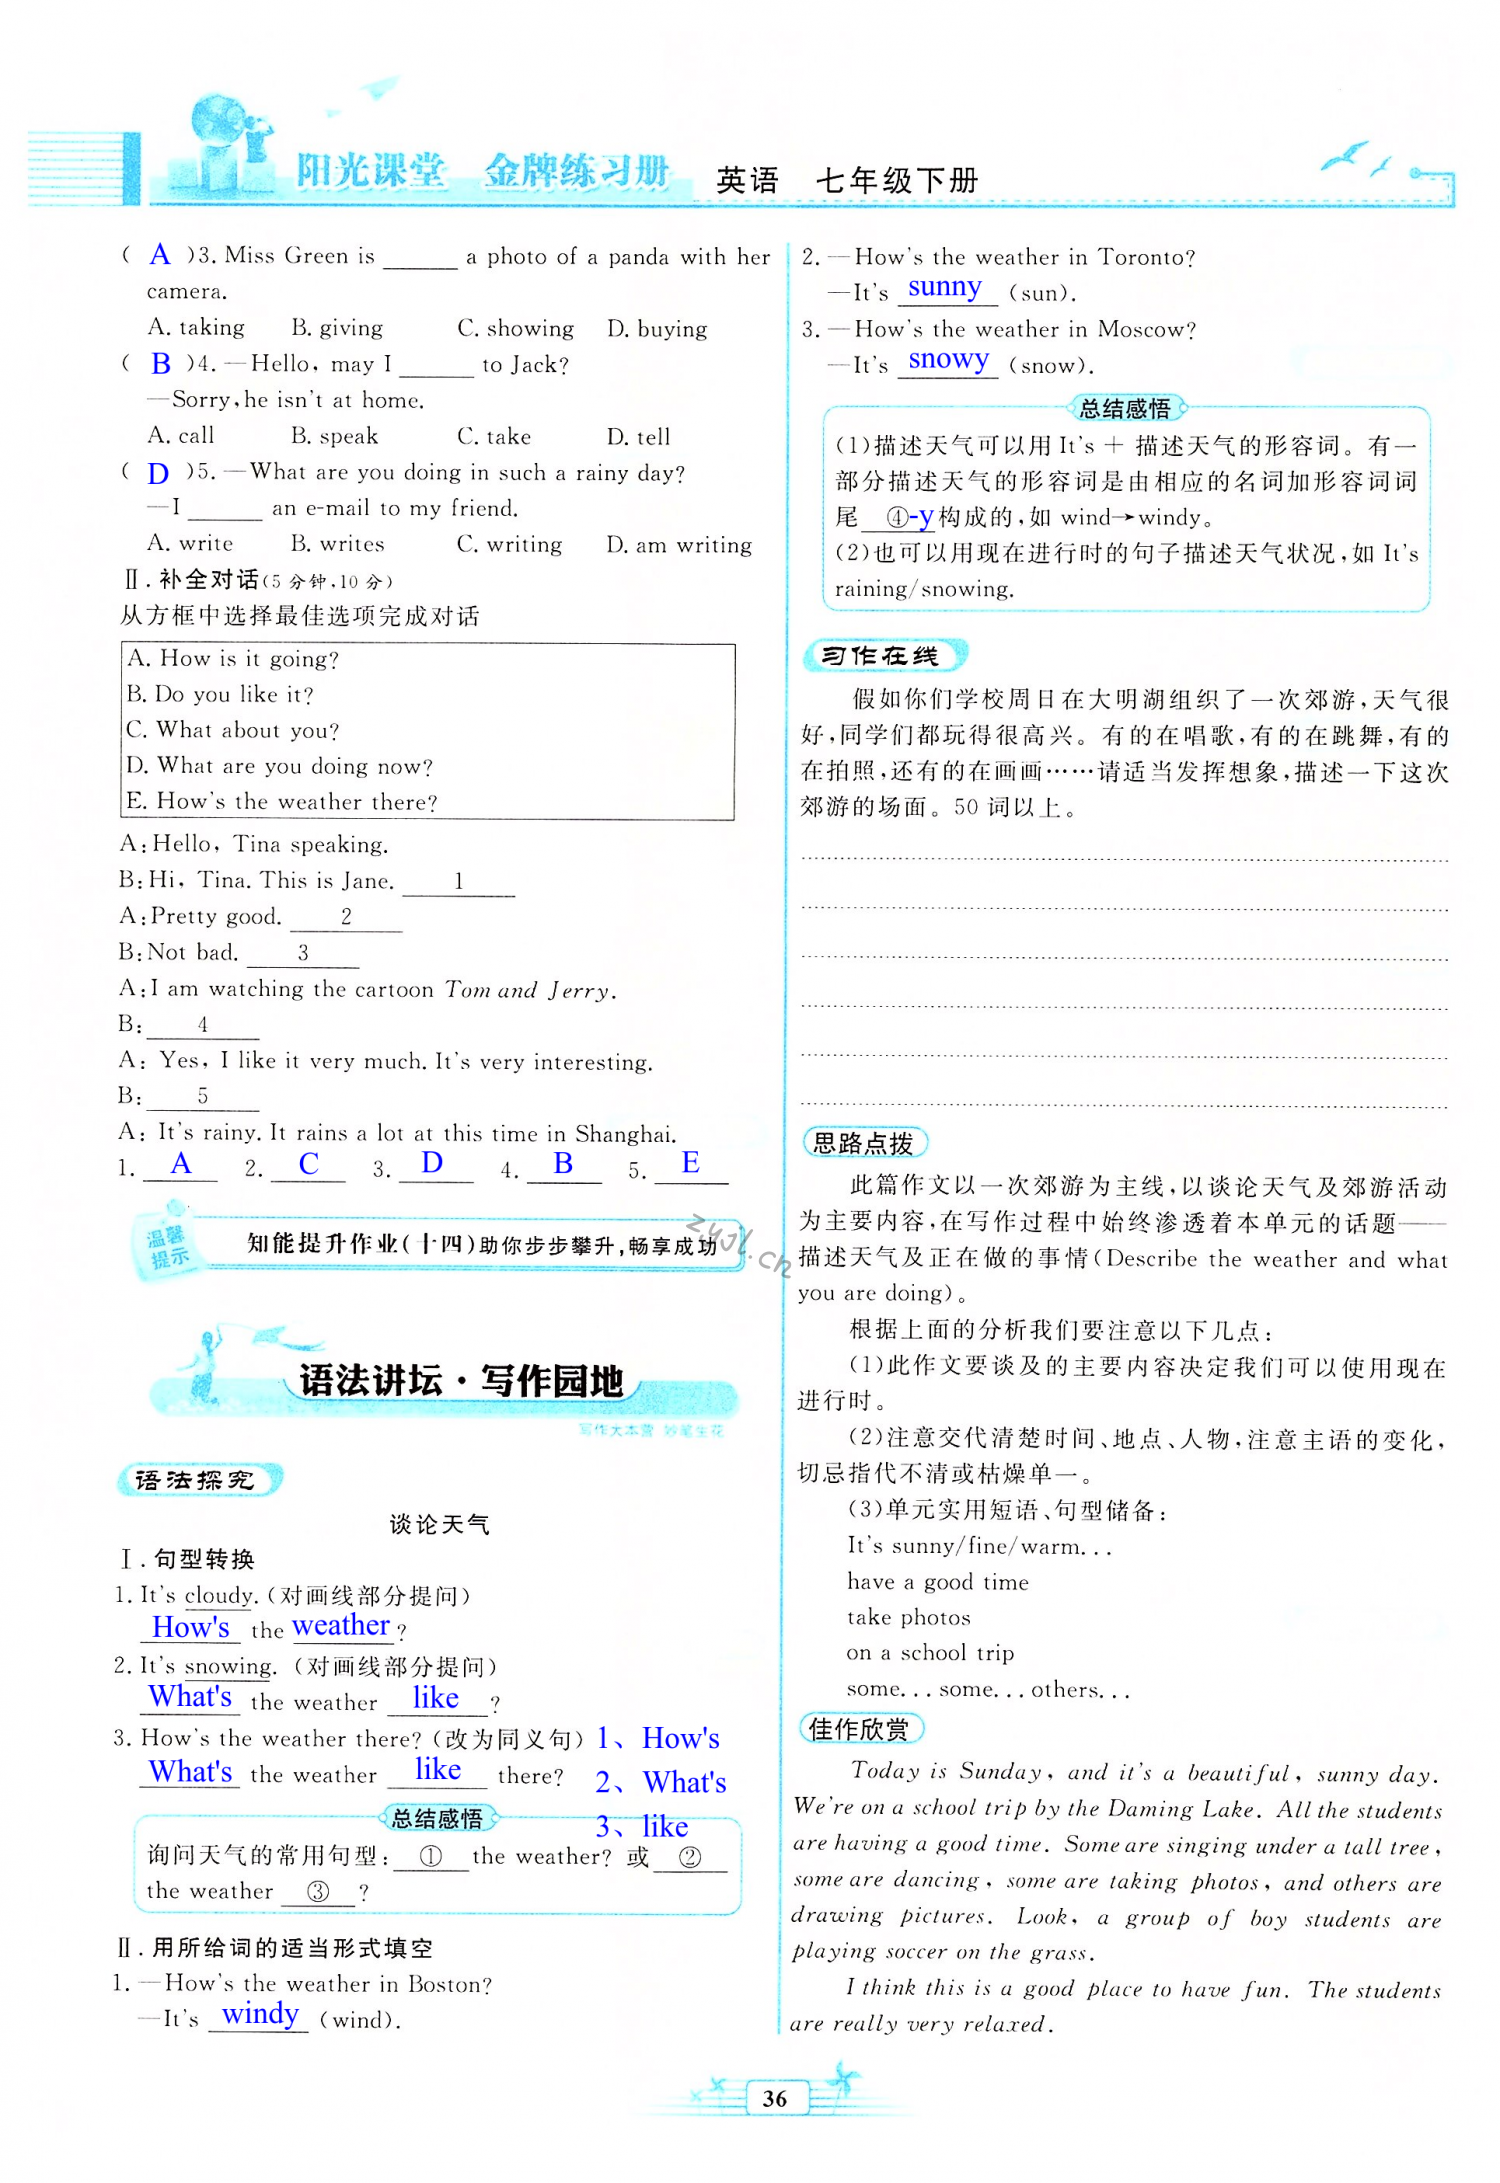 阳光课堂 金牌练习册 英语 七年级下册
( A )3. Miss Green is ______ a photo of a panda with her
camera.
A. taking B. giving C. showing D. buying
( B )4. —Hello, may I ______ to Jack?
—Sorry, he isn't at home.
A. call B. speak C. take D. tell
( D )5. —What are you doing in such a rainy day?
—I ______ an e-mail to my friend.
A. write B. writes C. writing D. am writing
Ⅱ. 补全对话(5 分钟,10 分)
从方框中选择最佳选项完成对话
A. How is it going?
B. Do you like it?
C. What about you?
D. What are you doing now?
E. How's the weather there?
A: Hello, Tina speaking.
B: Hi, Tina. This is Jane. 1
A: Pretty good. 2
B: Not bad. 3
A: I am watching the cartoon Tom and Jerry.
B: 4
A: Yes, I like it very much. It's very interesting.
B: 5
A: It's rainy. It rains a lot at this time in Shanghai.
1. A 2. C 3. D 4. B 5. E
温馨
提示
知能提升作业(十四)助你步步攀升,畅享成功
zyjl.cn
语法讲坛·写作园地
写作大本营 妙笔生花
语法探究
谈论天气
Ⅰ. 句型转换
1. It's cloudy. (对画线部分提问)
How's the weather ?
2. It's snowing. (对画线部分提问)
What's the weather like ?
3. How's the weather there? (改为同义句)
What's the weather like there?
1、How's
2、What's
3、like
总结感悟
询问天气的常用句型: ① the weather? 或 ②
the weather ③ ?
Ⅱ. 用所给词的适当形式填空
1. —How's the weather in Boston?
—It's windy (wind).
2. —How's the weather in Toronto?
—It's sunny (sun).
3. —How's the weather in Moscow?
—It's snowy (snow).
总结感悟
(1)描述天气可以用 It's + 描述天气的形容词。有一
部分描述天气的形容词是由相应的名词加形容词词
尾 ④-y 构成的,如 wind→windy。
(2)也可以用现在进行时的句子描述天气状况,如 It's
raining/snowing.
习作在线
假如你们学校周日在大明湖组织了一次郊游,天气很
好,同学们都玩得很高兴。有的在唱歌,有的在跳舞,有的
在拍照,还有的在画画……请适当发挥想象,描述一下这次
郊游的场面。50 词以上。
思路点拨
此篇作文以一次郊游为主线,以谈论天气及郊游活动
为主要内容,在写作过程中始终渗透着本单元的话题——
描述天气及正在做的事情(Describe the weather and what
you are doing)。
根据上面的分析我们要注意以下几点:
(1)此作文要谈及的主要内容决定我们可以使用现在
进行时。
(2)注意交代清楚时间、地点、人物,注意主语的变化,
切忌指代不清或枯燥单一。
(3)单元实用短语、句型储备:
It's sunny/fine/warm...
have a good time
take photos
on a school trip
some... some... others...
佳作欣赏
Today is Sunday, and it's a beautiful, sunny day.
We're on a school trip by the Daming Lake. All the students
are having a good time. Some are singing under a tall tree,
some are dancing, some are taking photos, and others are
drawing pictures. Look, a group of boy students are
playing soccer on the grass.
I think this is a good place to have fun. The students
are really very relaxed.
36